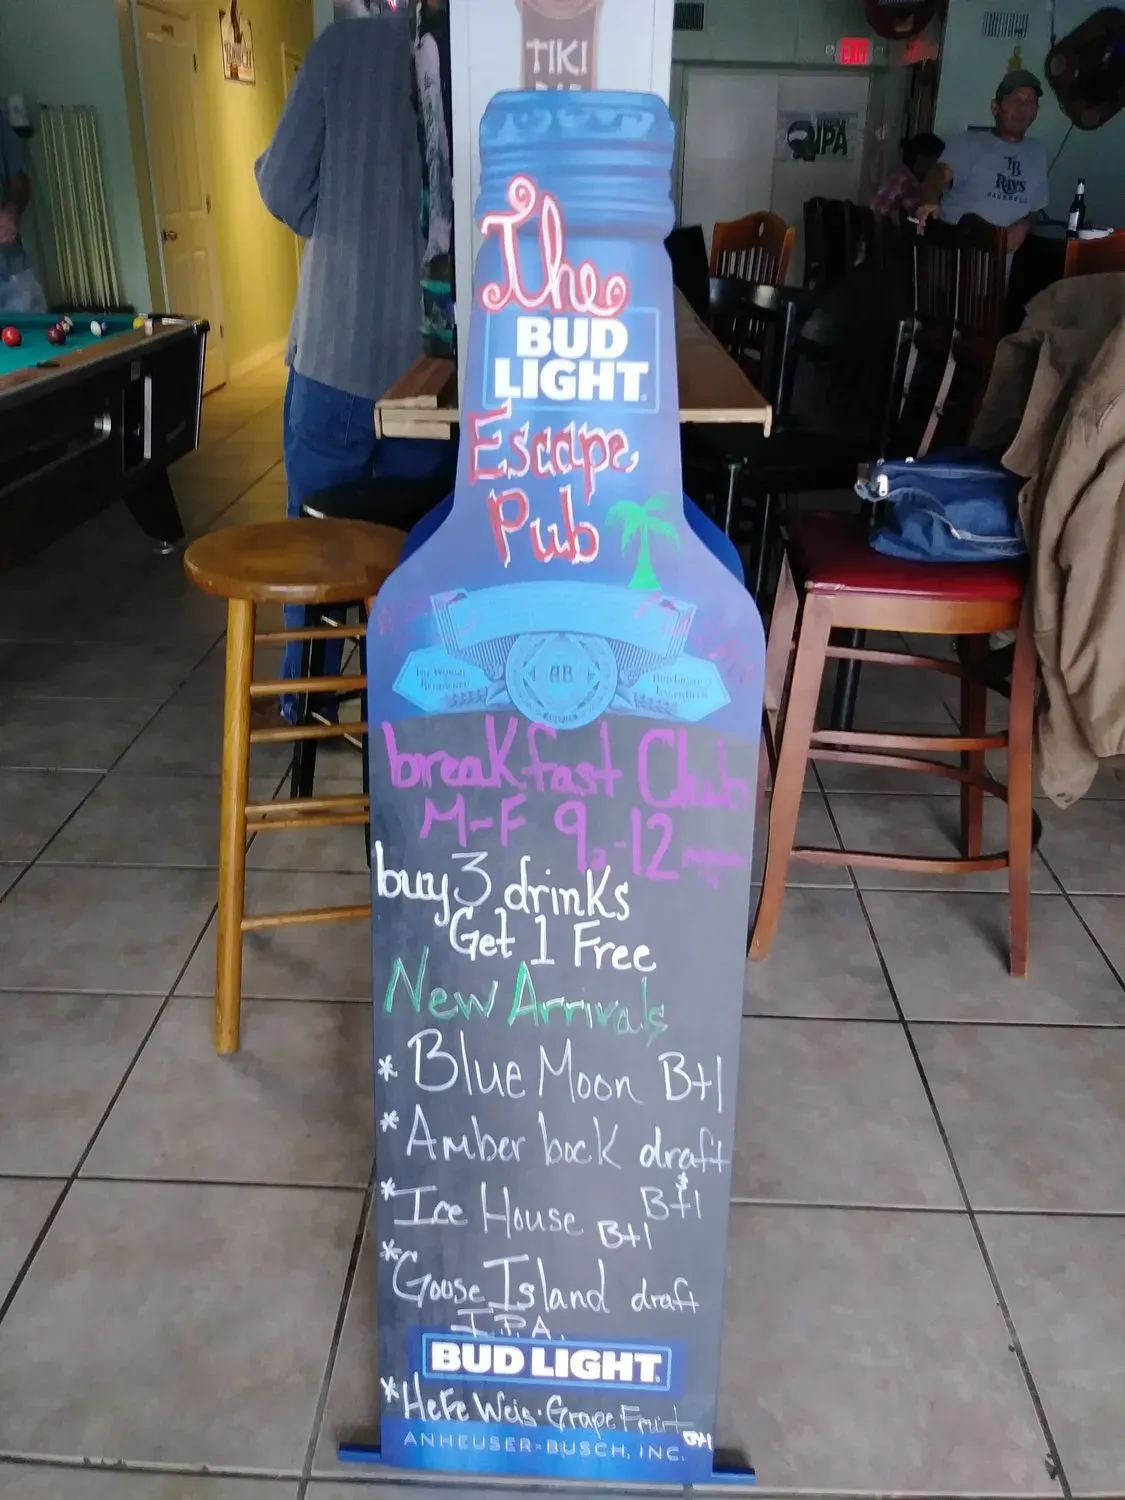 TIKI
EXIT
IPA
TB
Rays
BASEBALL
The
BUD
LIGHT
Escape
Pub
AB
breakfast Club
M-F 9-12
buy 3 drinks
Get 1 Free
New Arrivals
* Blue Moon B+l
* Amber bock draft
$ B+l
* Ice House B+l
* Goose Island draft
I.P.A.
BUD LIGHT
* HeFe Weis. GrapeFruit B+l
ANHEUSER-BUSCH, INC.